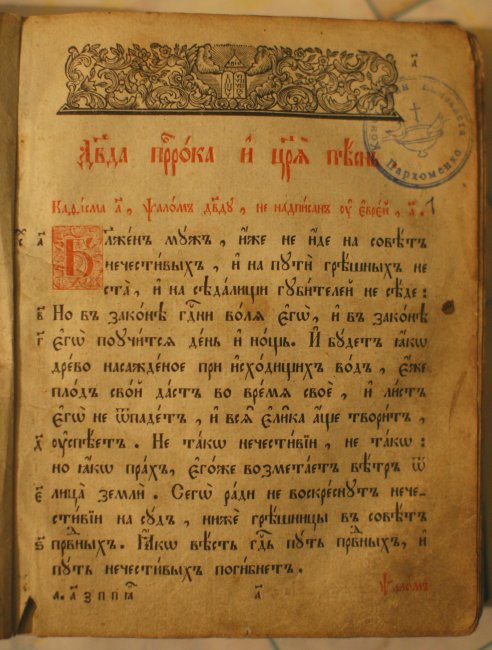 а҃
Дв҃да прⷪ҇ро́ка и҆ цр҃ѧ̀ пѣ́снь
Каѳі́сма а҃, ѱало́мъ дв҃ду, не надпи́санъ оу҆ є҆вре́й, а҃. 1
Бл҃же́нъ мꙋ́жъ, и҆́же не и҆́де на совѣ́тъ
нечести́выхъ, и҆ на пꙋтѝ грѣ́шныхъ не
ста̀, и҆ на сѣда́лищи гꙋби́телей не сѣ́де:
в҃ Но въ зако́нѣ гд҇ни во́лѧ є҆гѡ̀, и҆ въ зако́нѣ
г҃ є҆гѡ̀ поꙋчи́тсѧ де́нь и҆ но́щь. И҆ бꙋ́детъ ꙗ҆́кѡ
дре́во насажде́ное при и҆схо́дищихъ во́дъ, є҆́же
пло́дъ сво́й да́стъ во вре́мѧ своѐ, и҆ ли́стъ
є҆гѡ̀ не ѿпаде́тъ, и҆ всѧ̑ є҆ли̑ка а҆́ще твори́тъ,
д҃ оу҆спѣ́етъ. Не та́кѡ нечести́вїи, не та́кѡ:
но ꙗ҆́кѡ пра́хъ, є҆го́же возмета́етъ вѣ́тръ ѿ
є҃ лица̀ землѝ. Сегѡ̀ ра́ди не воскре́снꙋтъ нече-
сти́вїи на сꙋ́дъ, нижѐ грѣ́шницы въ совѣ́тъ
ѕ҃ првⷣныхъ. Ꙗ҆́кѡ вѣ́сть гд҇ь пꙋ́ть првⷣныхъ, и҆
пꙋ́ть нечести́выхъ поги́бнетъ.
а҃ Ѱало́мъ
Пархоменко